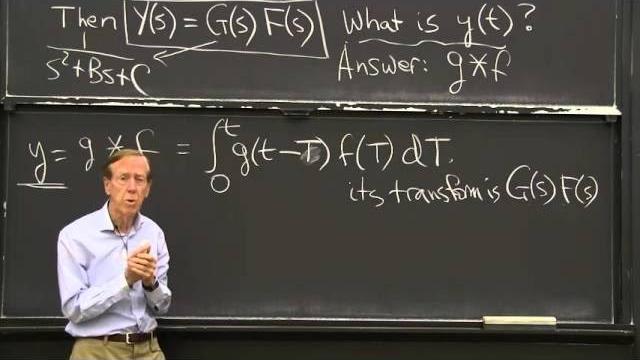 Then Y(s) = G(s) F(s) What is y(t)?
1
s²+Bs+C Answer: g*f
y = g * f = ∫₀ᵗ g(t-T) f(T) dT.
its transform is G(s) F(s)